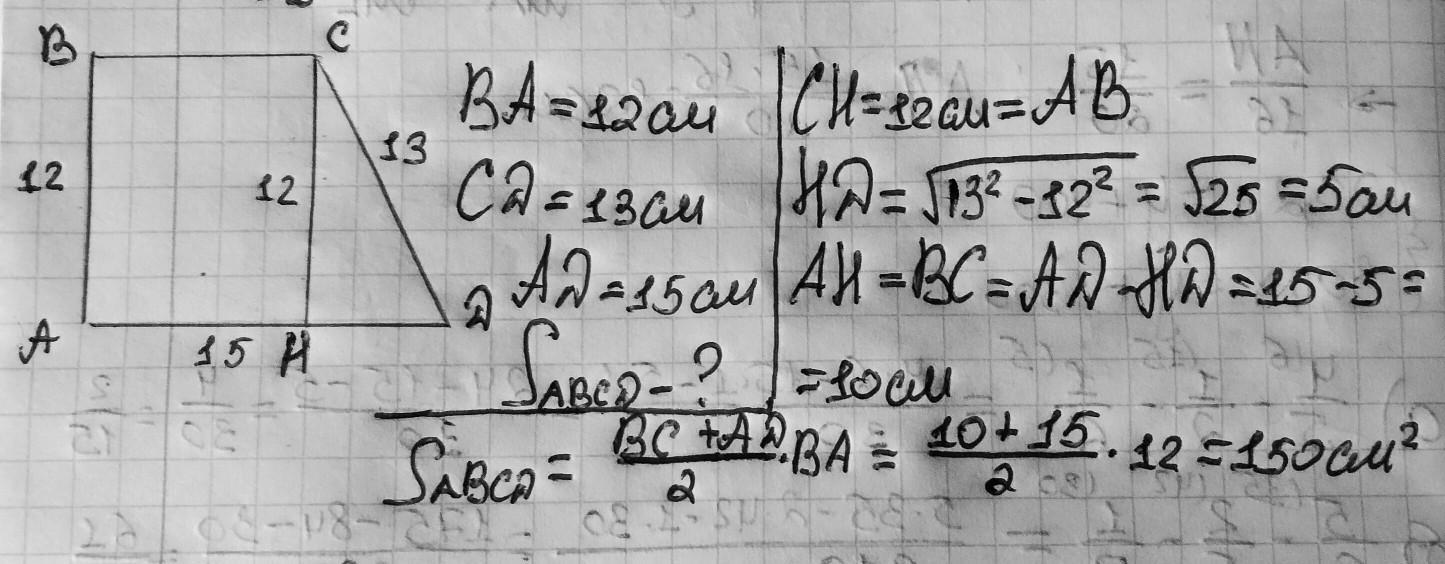 B C
12 12 13
A 15 H D
BA = 12 см
CD = 13 см
AD = 15 см
S_ABCD - ?
CH = 12 см = AB
HD = √(13² - 12²) = √25 = 5 см
AH = BC = AD - HD = 15 - 5 =
= 10 см
S_ABCD = (BC + AD)/2 · BA = (10 + 15)/2 · 12 = 150 см²